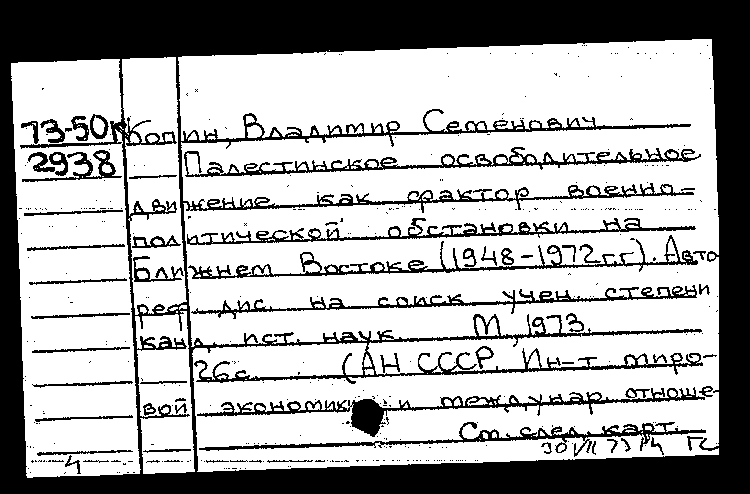 73-50к Копин, Владимир Семенович
2938 Палестинское освободительное
движение как фактор военно=
политической обстановки на
Ближнем Востоке (1948-1972 г.г.). Авто
реф. дис. на соиск учен. степени
канд. ист. наук. М., 1973.
26 с. (АН СССР. Ин-т миро-
вой экономики и междунар. отноше-
См. след. карт.
30 VII 73
4